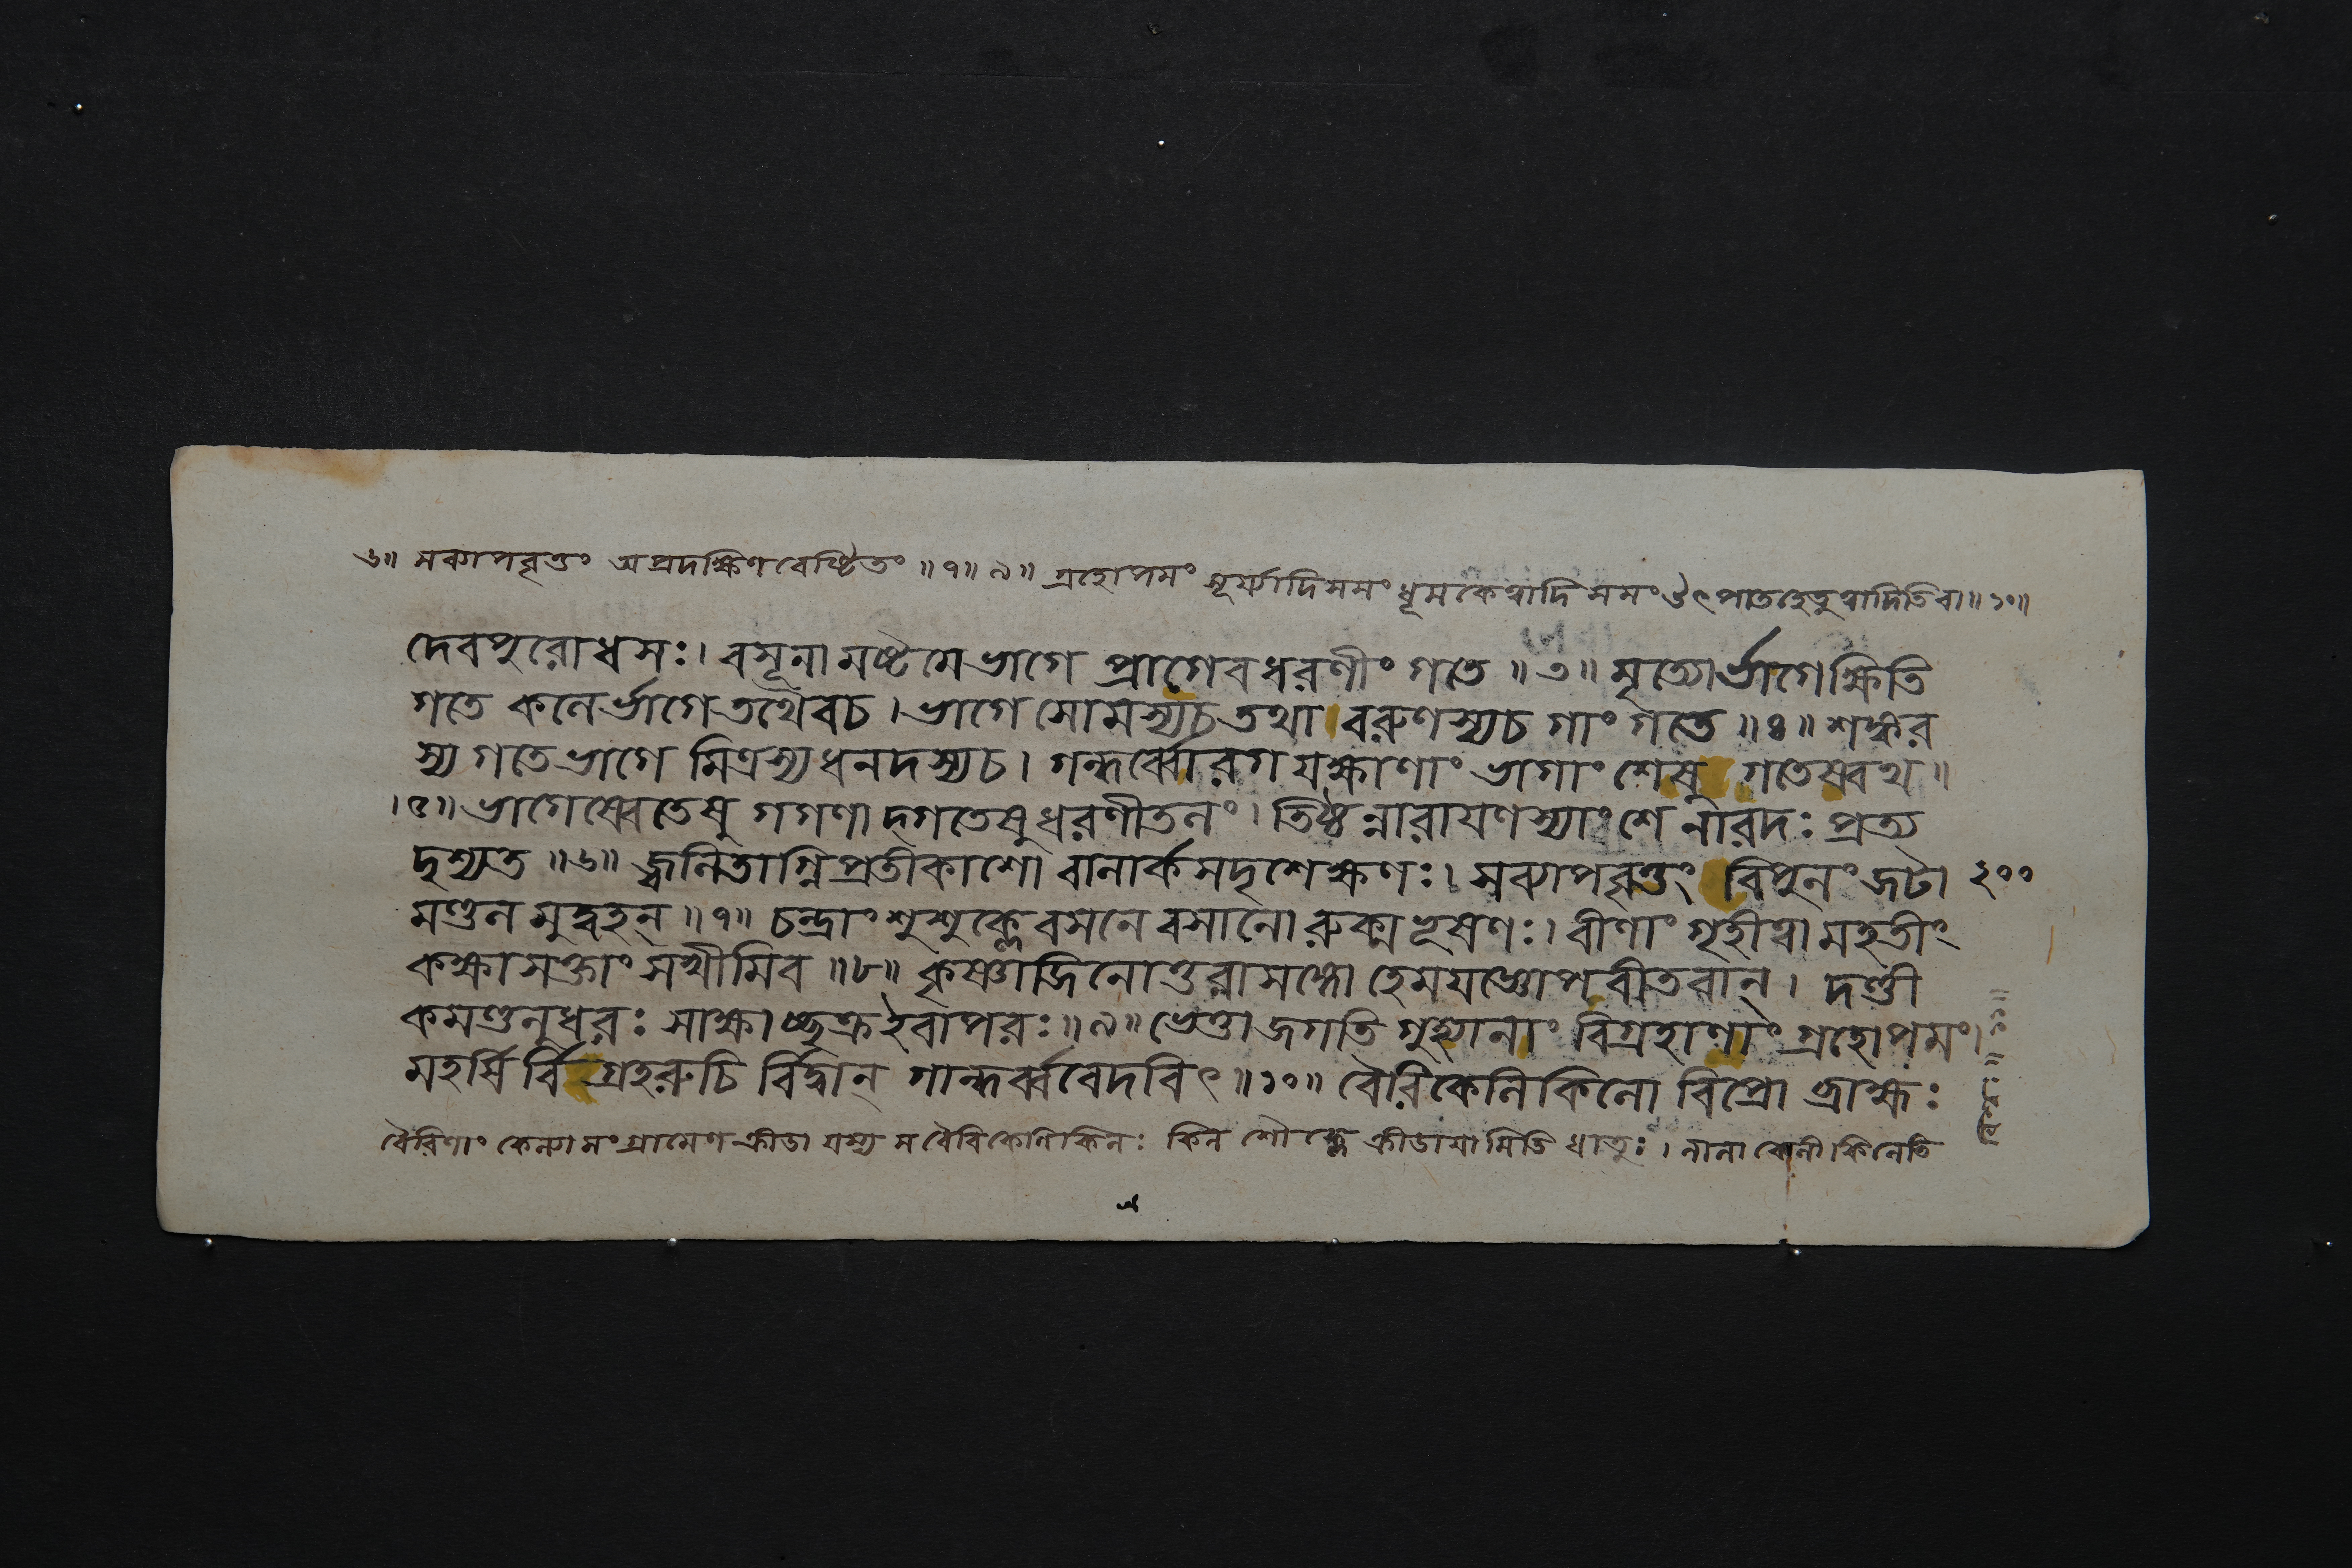 ৬॥ সব্যাপবৃত্তং অপ্রদক্ষিণবেষ্টিতং ॥৭॥৯॥ গ্রহোপমং সূর্য্যাদিসমং ধূমকেত্বাদি সমং ঔৎপাতহেতুত্বাদিতিবা॥১০॥
দেবপুরোধসঃ। বসূনামষ্টমেভাগে প্রাগেবধরণীং গতে ॥৩॥ মৃত্যোর্ভাগেক্ষিতি
গতে কলের্ভাগেতথৈবচ। ভাগে সোমস্যচতথা।বরুণস্যচ গাং গতে ॥৪॥ শঙ্কর
স্য গতেভাগে মিত্রস্যধনদস্যচ। গন্ধর্ব্বোরগযক্ষাণাং ভাগাংশেষু গতেষ্বথ॥
।৫॥ ভাগেষ্বেতেষু গগণাদ্গতেষুধরণীতলং। তিষ্ঠন্নারায়ণস্যাংশে নারদঃ প্রত্য
দৃশ্যত ॥৬॥ জ্বলিতাগ্নিপ্রতীকাশো বালার্কসদৃশেক্ষণঃ। সব্যাপবৃত্তং বিপুলং জটা ২০০
মণ্ডলমুদ্বহন্ ॥৭॥ চন্দ্রাংশুশুক্লেবসনে বসানোরুক্মভূষণঃ। বীণাং গৃহীত্বামহতীং
কক্ষাসক্তাং সখীমিব ॥৮॥ কৃষ্ণাজিনোত্তরাসঙ্গো হেমযজ্ঞোপবীতবান্। দণ্ডী
কমণ্ডলুধরঃ সাক্ষাচ্ছক্রইবাপরঃ ॥৯॥ ভেত্তাজগতি গুহ্যানাং বিগ্রহাণাং গ্রহোপমং।
মহর্ষি র্বিগ্রহরুচি র্বিদ্বান্ গান্ধর্ব্ববেদবিৎ ॥১০॥ বৈরিকেলিকিলো বিপ্রো ব্রাহ্মঃ
বৈরিণাং কেল্যাসংগ্রামেণ ক্রীডা যস্য সবৈরিকেলিকিলঃ কিল শৌক্ল্যে ক্রীডায়ামিতি ধাতুঃ।